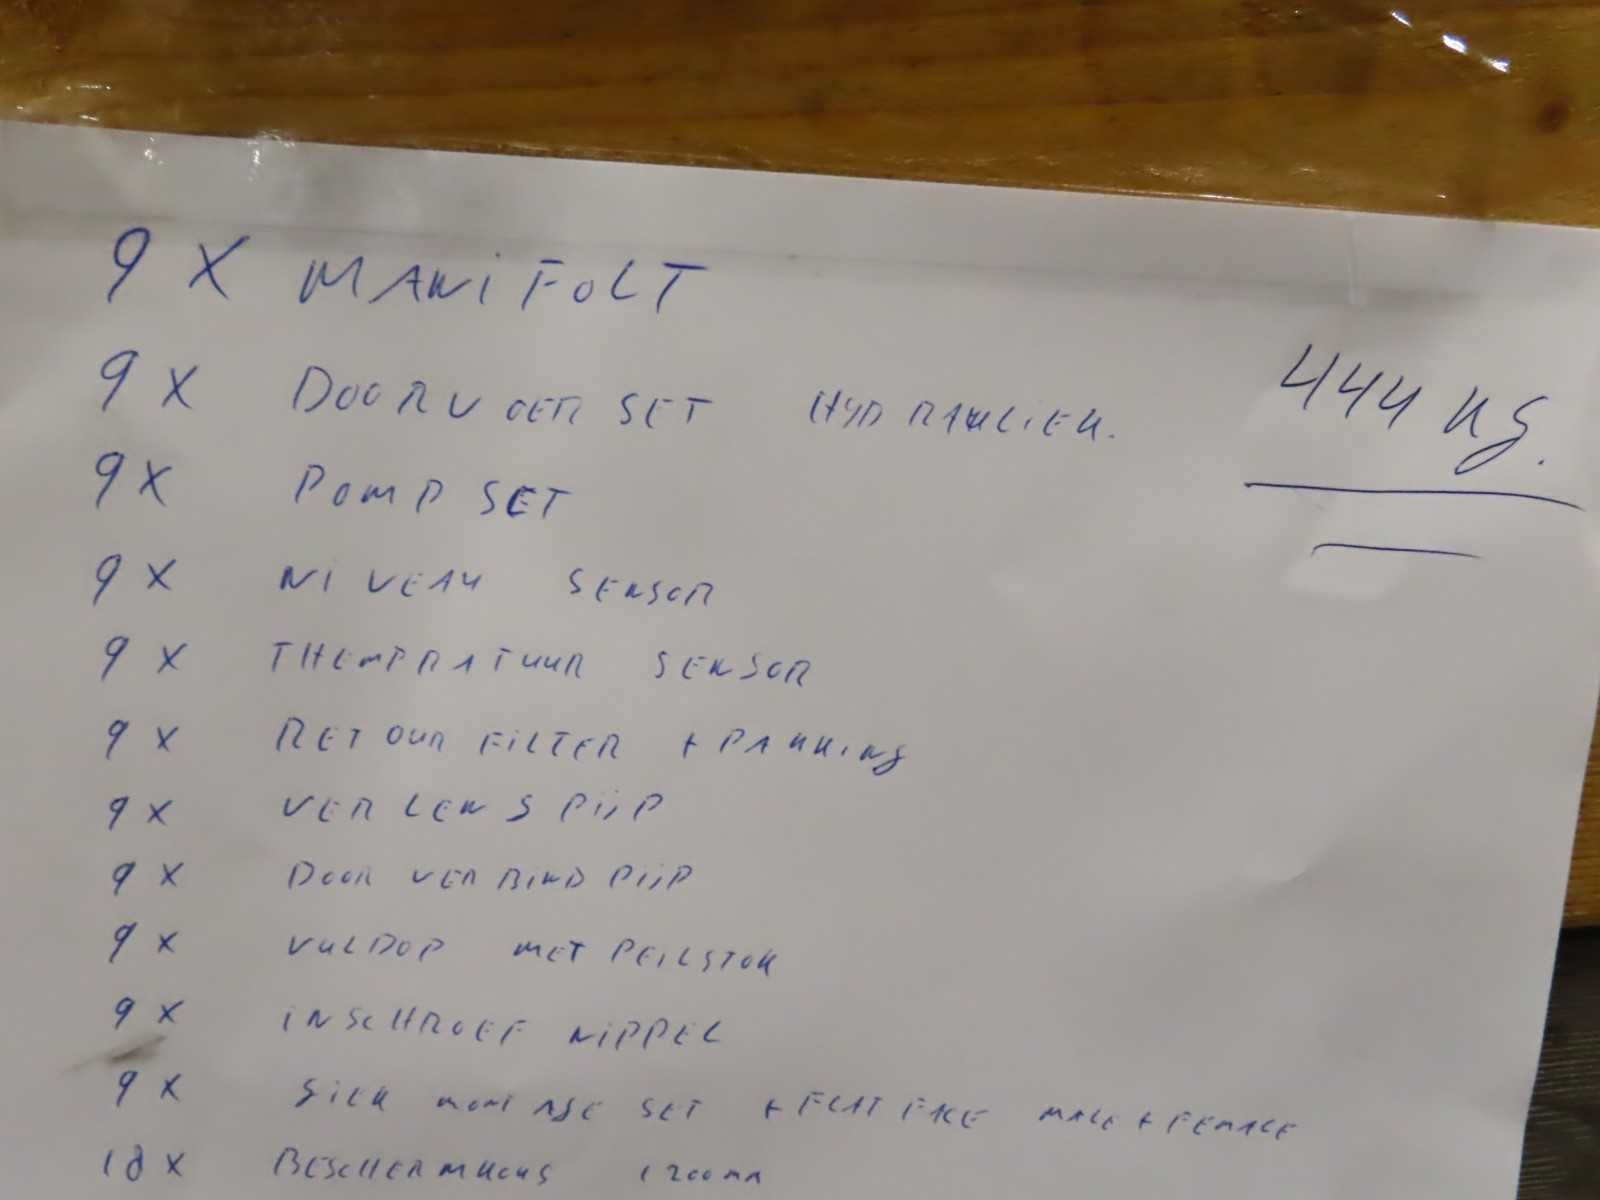 9 X MANiFOLT
9 X DOORVOER SET HYDRAULIEK.
444 KG.
9 X POMP SET
9 X NIVEAU SENSOR
9 X THEMPRATUUR SENSOR
9 X RETOUR FILTER + PAKKING
9 X VERLENGPIJP
9 X DOORVERBIND PIJP
9 X VULDOP MET PEILSTOK
9 X INSCHROEF NIPPEL
9 X SICK MONTAGE SET + FLAT FACE MALE + FEMALE
18 X BESCHERMKOUS 1200mm